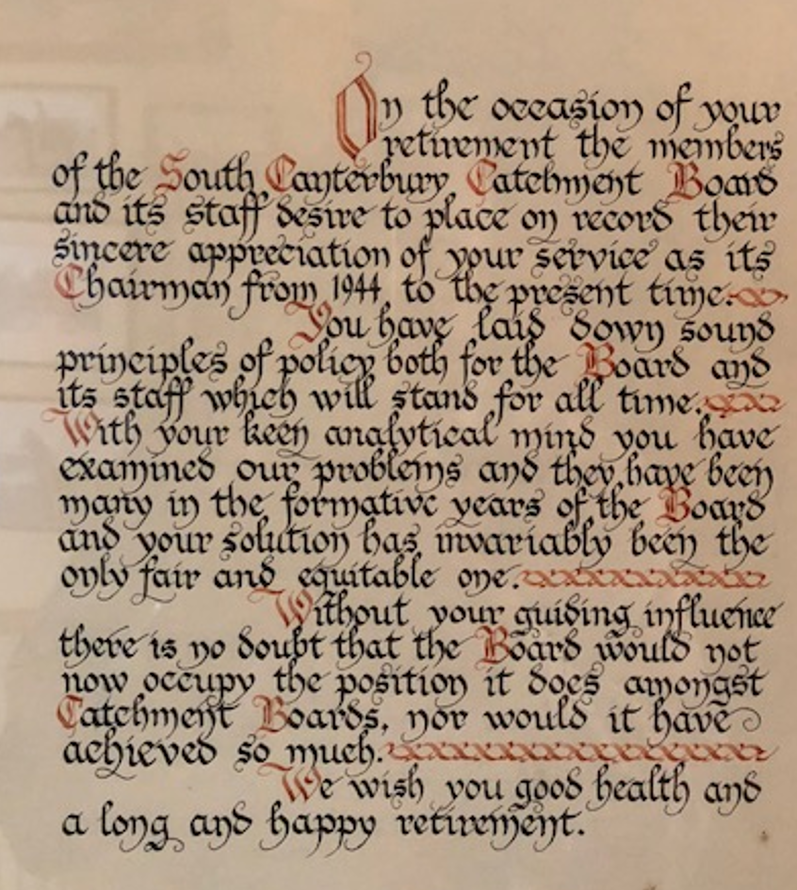 On the occasion of your
retirement the members
of the South Canterbury Catchment Board
and its staff desire to place on record their
sincere appreciation of your service as its
Chairman from 1944 to the present time.
You have laid down sound
principles of policy both for the Board and
its staff which will stand for all time.
With your keen analytical mind you have
examined our problems and they have been
many in the formative years of the Board
and your solution has invariably been the
only fair and equitable one.
Without your guiding influence
there is no doubt that the Board would not
now occupy the position it does amongst
Catchment Boards, nor would it have
achieved so much.
We wish you good health and
a long and happy retirement.